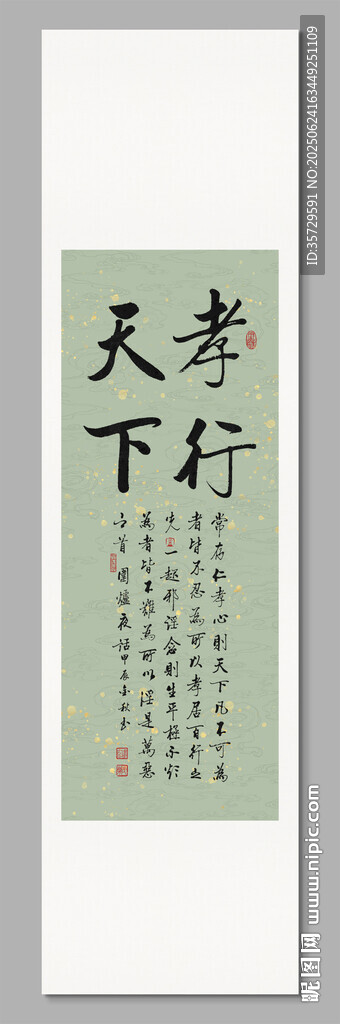 孝行
天下
常存仁孝心則天下凡不可為
者皆不忍為所以孝居百行之
先一起邪淫念則生平極不欲
為者皆不難為所以淫是萬惡
之首 圍爐夜話甲辰金秋書
ID:35729591 NO:20250624163449251109
昵图网 www.nipic.com